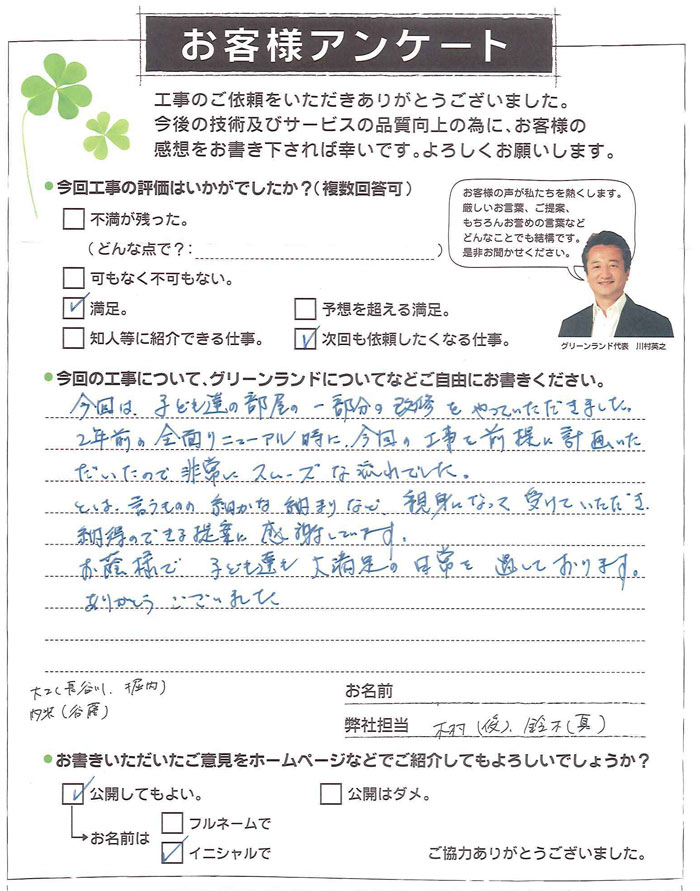 お客様アンケート
工事のご依頼をいただきありがとうございました。
今後の技術及びサービスの品質向上の為に、お客様の
感想をお書き下されば幸いです。よろしくお願いします。
●今回工事の評価はいかがでしたか？（複数回答可）
お客様の声が私たちを熱くします。
厳しいお言葉、ご提案、
もちろんお誉めの言葉など
どんなことでも結構です。
是非お聞かせください。
グリーンランド代表 川村英之
不満が残った。
（どんな点で？：）
可もなく不可もない。
満足。
予想を超える満足。
知人等に紹介できる仕事。
次回も依頼したくなる仕事。
●今回の工事について、グリーンランドについてなどご自由にお書きください。
今回は、子ども達の部屋の一部分の改修をやっていただきました。
2年前の全面リニューアル時に、今回の工事を前提に計画いた
だいたので非常にスムーズな流れでした。
とは、言うものの細かな納まりなど、親身になって受けていただき、
納得のできる提案に感謝しています。
お蔭様で子ども達も大満足の日常を過しております。
ありがとうございました
大工(長谷川、堀内)
内装(谷藤)
お名前
弊社担当 木村(俊)、鈴木(真)
●お書きいただいたご意見をホームページなどでご紹介してもよろしいでしょうか？
公開してもよい。
公開はダメ。
お名前は
フルネームで
イニシャルで
ご協力ありがとうございました。